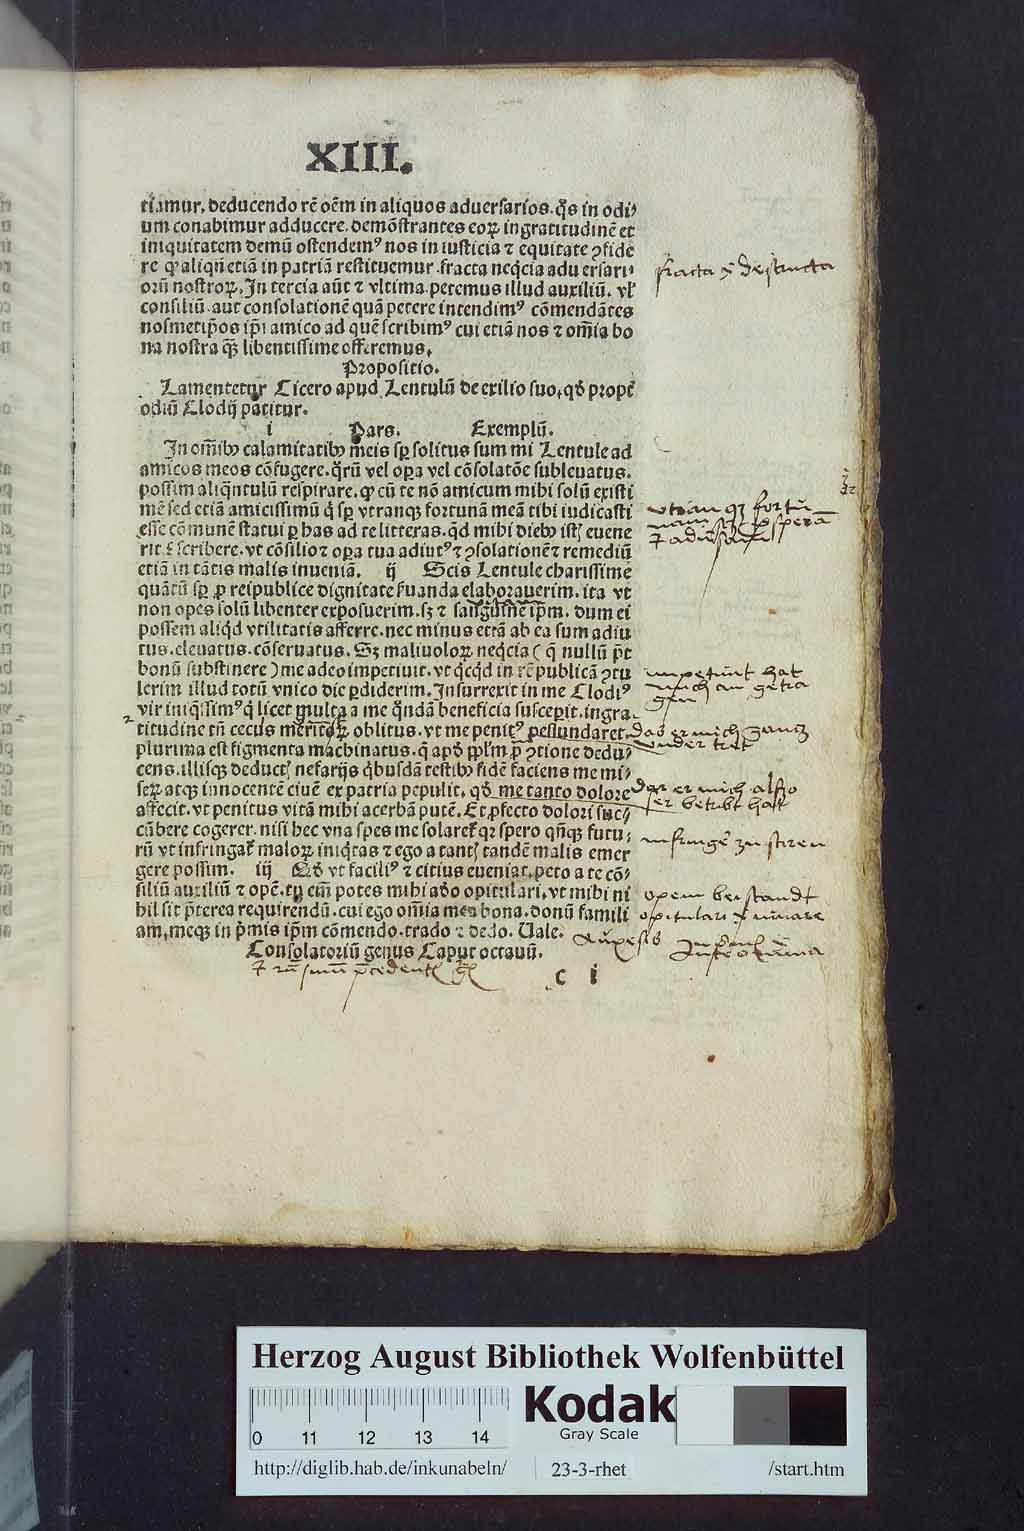 XIII.
tiamur. deducendo rē oēm in aliquos aduersarios. q̄s in odi⸗
um conabimur adducere. demōstrantes eoꝝ ingratitudinē et
iniquitatem demū ostendemꝰ nos in iusticia ⁊ equitate ꝯfide
re ꝙ aliqn̄ etiā in patriā restituemur. fracta neq̄cia aduersari⸗
orū nostroꝝ. In tercia aūt ⁊ vltima petemus illud auxiliū. vl̓
consiliū. aut consolationē quā petere intendimꝰ cōmendātes
nosmetip̄os ip̄i amico ad quē scribimꝰ cui etiā nos ⁊ om̄ia bo
na nostra q̄ꝫ libentissime offeremus.
Propositio.
Lamentetur Cicero apud Lentulū de exilio suo. qd̓ propt̓
odiū Clodij patitur.
i Pars. Exemplū.
In om̄ibꝰ calamitatibꝰ meis sp̄ solitus sum mi Lentule ad
amicos meos cōfugere. q̄rū vel oꝑa vel cōsolatōe subleuatus.
possim aliq̄ntulū respirare. ꝙ cū te nō amicum mihi solū existi
mē sed etiā amicissimū q̇ sp̄ vtranqꝫ fortunā meā tibi iudicasti
esse cōmunē statui ꝑ has ad te litteras. q̇d mihi diebꝰ istꝭ euene
rit ꝑscribere. vt cōsilio ⁊ oꝑa tua adiutꝰ ⁊ ꝯsolationē ⁊ remediū
etiā in tātis malis inueniā. ij Scis Lentule charissime
quātū sp̄ ꝓ reipublice dignitate ẜuanda elaborauerim. ita vt
non opes solū libenter exposuerim. sꝫ ⁊ sanguinē ip̄m. dum ei
possem aliq̇d vtilitatis afferre. nec minus etiā ab ea sum adiu
tus. eleuatus. cōseruatus. Sꝫ maliuoloꝝ neq̄cia (q̄ nullū p̄t
bonū substinere) me adeo impetiuit. vt q̇cq̇d in rē publicā ꝯtu
lerim illud totū vnico die ꝑdiderim. Insurrexit in me Clodiꝰ
vir iniq̇ssimꝰ q̇ licet multa a me q̄ndā beneficia susceperit. ingra
titudine tn̄ cecus meritoꝝ oblitus. vt me penitꝰ pessundaret.
plurima est figmenta machinatus. q̄ apd̓ pp̄lm ꝓ ꝯtione dedu⸗
cens. illisqꝫ deductꝭ nefarijs q̇busdā testibꝰ fidē faciens me mi⸗
seꝝ atqꝫ innocentē ciuē ex patria pepulit. qd̓ me tanto dolore
affecit. vt penitus vitā mihi acerbā putē. Et ꝓfecto dolori suc⸗
cūbere cogerer. nisi hec vna spes me solaret̓ qꝛ spero qn̄qꝫ futu⸗
rū vt infringat̓ maloꝝ iniq̇tas ⁊ ego a tantꝭ tandē malis emer
gere possim. iij Qd̓ vt faciliꝰ ⁊ citius eueniat. peto a te cō⸗
siliū auxiliū ⁊ opē. tu em̄ potes mihi adeo opitulari. vt mihi ni
hil sit p̄terea requirendū. cui ego om̄ia mea bona. donū famili
am. meqꝫ in p̄mis ip̄m cōmendo. trado ⁊ dedo. Uale.
Consolatoriū genus Caput octauū.
c i
fracta
vtranqꝫ fortu
nam
impetiuit hat
mich an getra
gen
das er mich gantz
vnder tret
das er mich also
ser betribt hatt
infringe zu storen
opem beistandt
opitulari
Herzog August Bibliothek Wolfenbüttel
0 11 12 13 14
Kodak
Gray Scale
http://diglib.hab.de/inkunabeln/ 23-3-rhet /start.htm